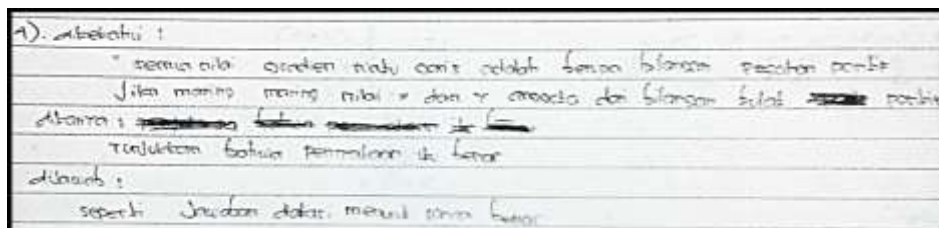 1). diketahui :
" semua nilai gradien suatu garis adalah berupa bilangan pecahan positif
Jika masing masing nilai x dan y berbeda dan bilangan bulat positif
ditanya :
Tunjukkan bahwa pernyataan itu benar
dijawab :
seperti Jawaban diatas. menurut saya benar